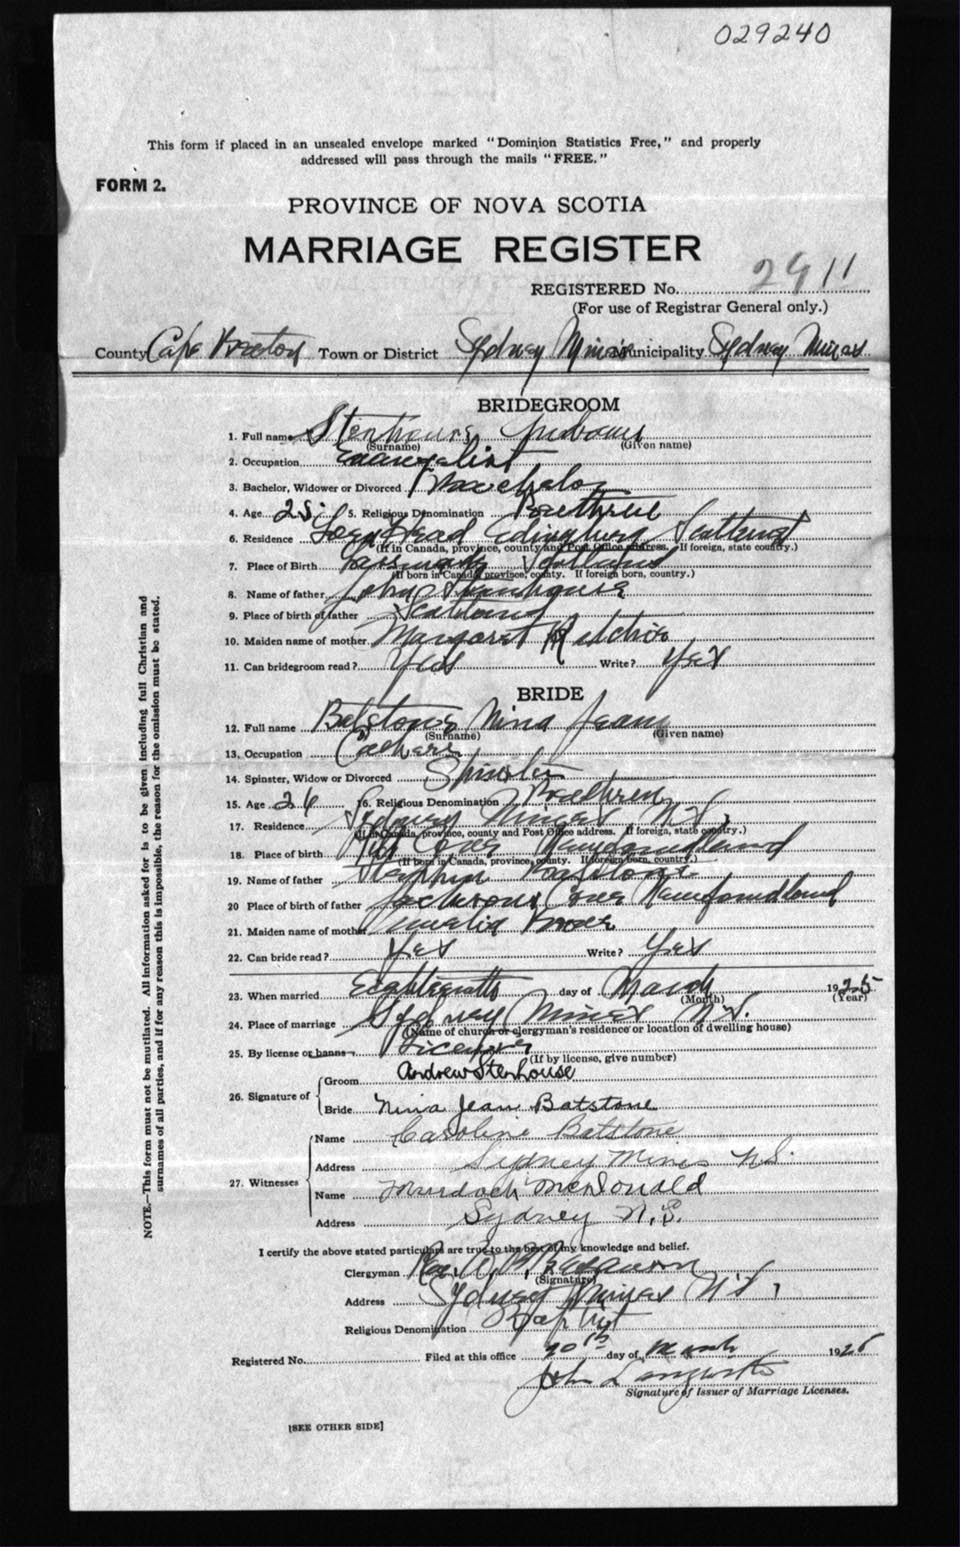 029240
This form if placed in an unsealed envelope marked "Dominion Statistics Free," and properly
addressed will pass through the mails "FREE."
FORM 2.
PROVINCE OF NOVA SCOTIA
MARRIAGE REGISTER
REGISTERED No. 2911
(For use of Registrar General only.)
County Cape Breton Town or District Sydney Mines Municipality Sydney Mines
BRIDEGROOM
1. Full name Stenhouse Andrew
(Surname) (Given name)
2. Occupation Evangelist
3. Bachelor, Widower or Divorced Bachelor
4. Age 28 5. Religious Denomination Brethren
6. Residence Loan Head Edinburg Scotland
(If in Canada, province, county and Post Office address. If foreign, state country.)
7. Place of Birth Scotland
(If born in Canada, province, county. If foreign born, country.)
8. Name of father John Stenhouse
9. Place of birth of father Scotland
10. Maiden name of mother Margaret
11. Can bridegroom read? Yes Write? Yes
BRIDE
12. Full name Batstone Nina Jean
(Surname) (Given name)
13. Occupation
14. Spinster, Widow or Divorced Spinster
15. Age 26 16. Religious Denomination Brethren
17. Residence Sydney Mines N.S.
(If in Canada, province, county and Post Office address. If foreign, state country.)
18. Place of birth Cove Newfoundland
(If born in Canada, province, county. If foreign born, country.)
19. Name of father Stephen Batstone
20 Place of birth of father Jacksons Cove Newfoundland
21. Maiden name of mother
22. Can bride read? Yes Write? Yes
23. When married Eighteenth day of March 1925
(Month) (Year)
24. Place of marriage Sydney Mines N.S.
(Name of church or clergyman's residence or location of dwelling house)
25. By license or banns License
(If by license, give number)
26. Signature of Groom Andrew Stenhouse
Bride Nina Jean Batstone
27. Witnesses Name Caroline Batstone
Address Sydney Mines N.S.
Name Murdoch McDonald
Address Sydney N.S.
I certify the above stated particulars are true to the best of my knowledge and belief.
Clergyman Rev. A.
(Signature)
Address Sydney Mines N.S.
Religious Denomination Baptist
Registered No. Filed at this office 20th day of March 1925
John
Signature of Issuer of Marriage Licenses.
[SEE OTHER SIDE]
NOTE.—This form must not be mutilated. All information asked for is to be given including full Christian and
surnames of all parties, and if for any reason this is impossible, the reason for the omission must be stated.